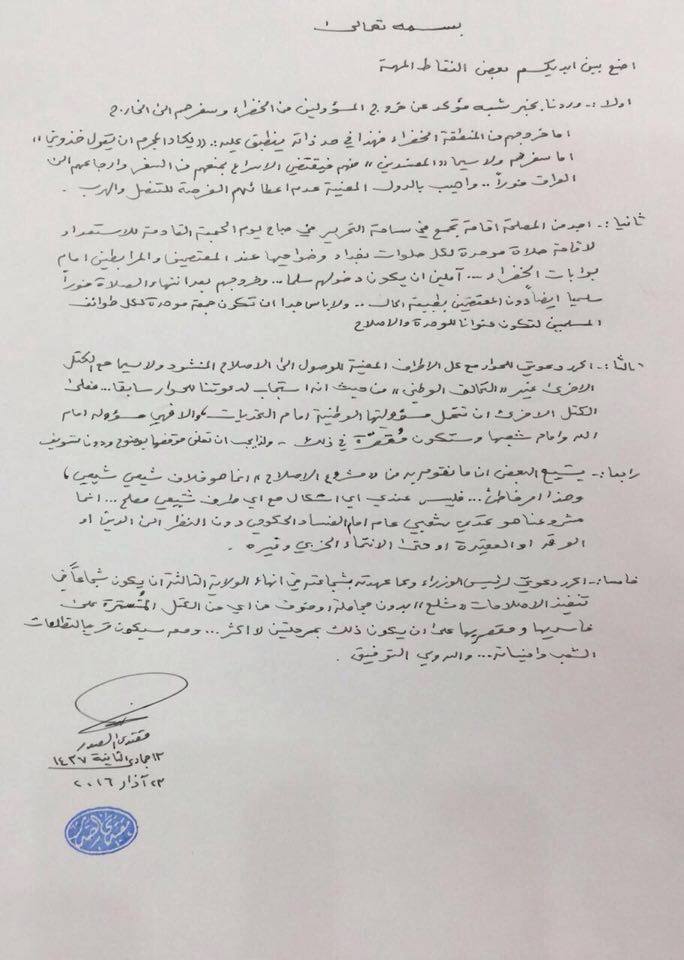 بسمه تعالى
اضع بين ايديكم بعض النقاط المهمة
اولا:- وردنا بخبر شبه مؤكد عن خروج المسؤولين من الخضراء وسفرهم الى الخارج
اما خروجهم من المنطقة الخضراء فهذا في حد ذاته ينطبق عليه: «يكاد المجرم ان يقول خذوني»
اما سفرهم ولا سيما «المفسدين» منهم فيقتضي الاسراع بمنعهم من السفر وارجاعهم الى
العراق فوراً .. واهيب بالدول المعنية عدم اعطائهم الفرصة للتنصل والهرب .
ثانيا:- اجد من المصلحة اقامة تجمع في ساحة التحرير في صباح يوم الجمعة القادمة للاستعداد
لاقامة صلاة موحدة لكل صلوات بغداد وضواحيها عند المعتصمين والمرابطين امام
بوابات الخضراء ... آملين ان يكون دخولهم سلميا .. وخروجهم بعد انتهاء الصلاة فوراً
سلميا ايضاً دون المعتصمين بطبيعة الحال .. ولا باس جدا ان تكون جمعة موحدة لكل طوائف
المسلمين لتكون عنوانا للوحدة والاصلاح
ثالثا:- اجدد دعوتي للحوار مع كل الاطراف المعنية للوصول الى الاصلاح المنشود ولا سيما مع الكتل
الاخرى غير «التحالف الوطني» من حيث انه استجاب لدعوتنا للحوار سابقا ... فعلى
الكتل الاخرى ان تتحمل مسؤوليتها الوطنية امام التحديات، والا فهي مسؤوله امام
الله وامام شعبها وستكون مُقصّرة في ذلك - ولذا يجب ان تعلن موقفها بوضوح ودون تسويف
رابعا:- يشيع البعض ان ما نقوم به من «مشروع الاصلاح» انما هو خلاف شيعي شيعي،
وهذا امر خاطئ ... فليس عندي اي اشكال مع اي طرف شيعي مصلح .. انما
مشروعنا هو تحدي شعبي عام امام الفساد الحكومي دون النظر الى الدين او
العرق او العقيدة او حتى الانتماء الحزبي وغيره .
خامسا:- اجدد دعوتي لرئيس الوزراء وكما عهدته بشجاعته في انهاء الولاية الثالثة ان يكون شجاعاً في
تنفيذ الاصلاحات «شلع» بدون مجاملة او خوف من اي من الكتل المُتسترة على
فاسديها ومقصريها على ان يكون ذلك بمرحلتين لا اكثر ... ومعه سيكون قريبا لتطلعات
الشعب وامنياته ... والله ولي التوفيق .
مقتدى الصدر
١٣ جمادي الثانية ١٤٣٧
٢٣ آذار ٢٠١٦
مقتدى الصدر